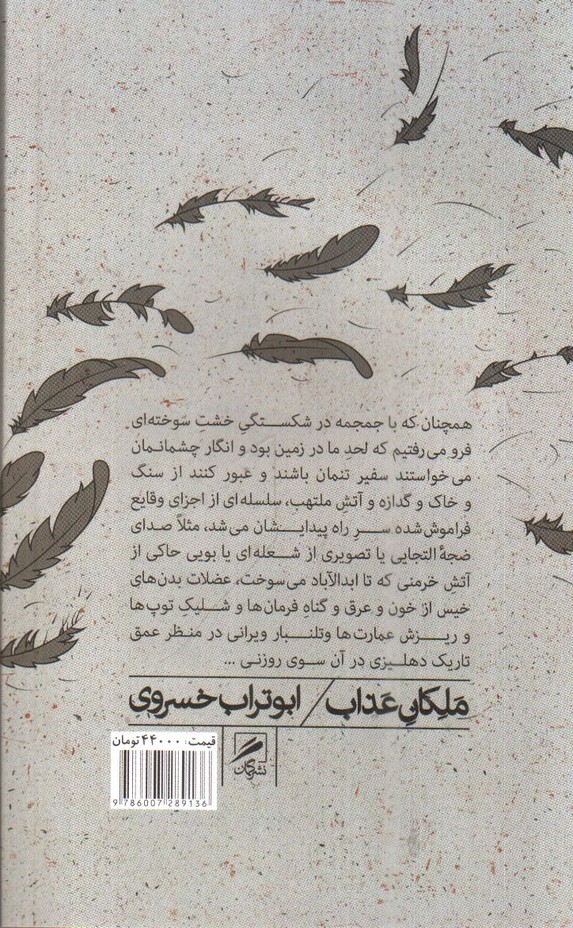 همچنان که با جمجمه در شکستگیِ خشتِ سوخته‌ای
فرو می‌رفتیم که لحدِ ما در زمین بود و انگار چشمانمان
می‌خواستند سفیر تنمان باشند و عبور کنند از سنگ
و خاک و گدازه و آتشِ ملتهب، سلسله‌ای از اجزای وقایع
فراموش‌شده سرِ راه پیدایشان می‌شد، مثلاً صدای
ضجهٔ التجایی یا تصویری از شعله‌ای یا بویی حاکی از
آتشِ خرمنی که تا ابدالآباد می‌سوخت، عضلات بدن‌های
خیس از خون و عرق و گناهِ فرمان‌ها و شلیکِ توپ‌ها
و ریزش عمارت‌ها وتلنبار ویرانی در منظر عمق
تاریک دهلیزی در آن سوی روزنی ...
مَلِکانِ عَذاب / ابوتراب خسروی
قیمت: ۴۴۰۰۰ تومان
نشر گمان
9 786007 289136